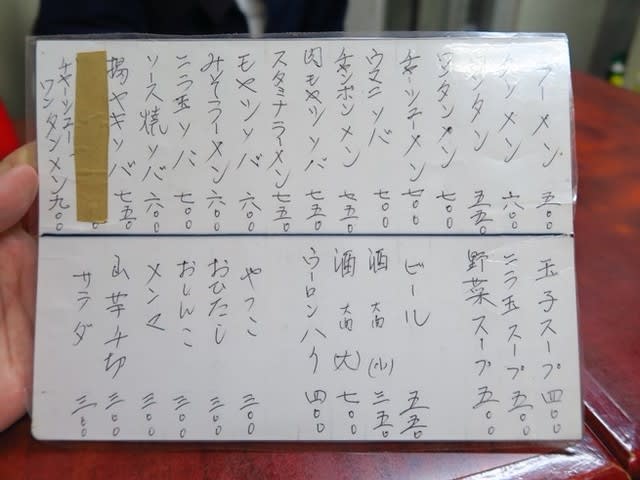 ラーメン 五〇〇
タンメン 六〇〇
ワンタン 五五〇
ワンタンメン 七〇〇
チャーシューメン 七〇〇
ウマニソバ 七〇〇
チャンポンメン 七五〇
肉モヤシソバ 七五〇
スタミナラーメン 七五〇
モヤシソバ 六〇〇
みそラーメン 六〇〇
ニラ玉ソバ 七〇〇
ソース焼ソバ 六〇〇
揚ヤキソバ 七五〇
チャーシューワンタンメン 九〇〇
玉子スープ 四〇〇
ニラ玉スープ 五〇〇
野菜スープ 五〇〇
ビール 五五〇
酒 大関 (小) 三五〇
酒 大関 (大) 七〇〇
ウーロンハイ 四〇〇
やっこ 三〇〇
おひたし 三〇〇
おしんこ 三〇〇
メンマ 三〇〇
山芋千切 三〇〇
サラダ 三〇〇